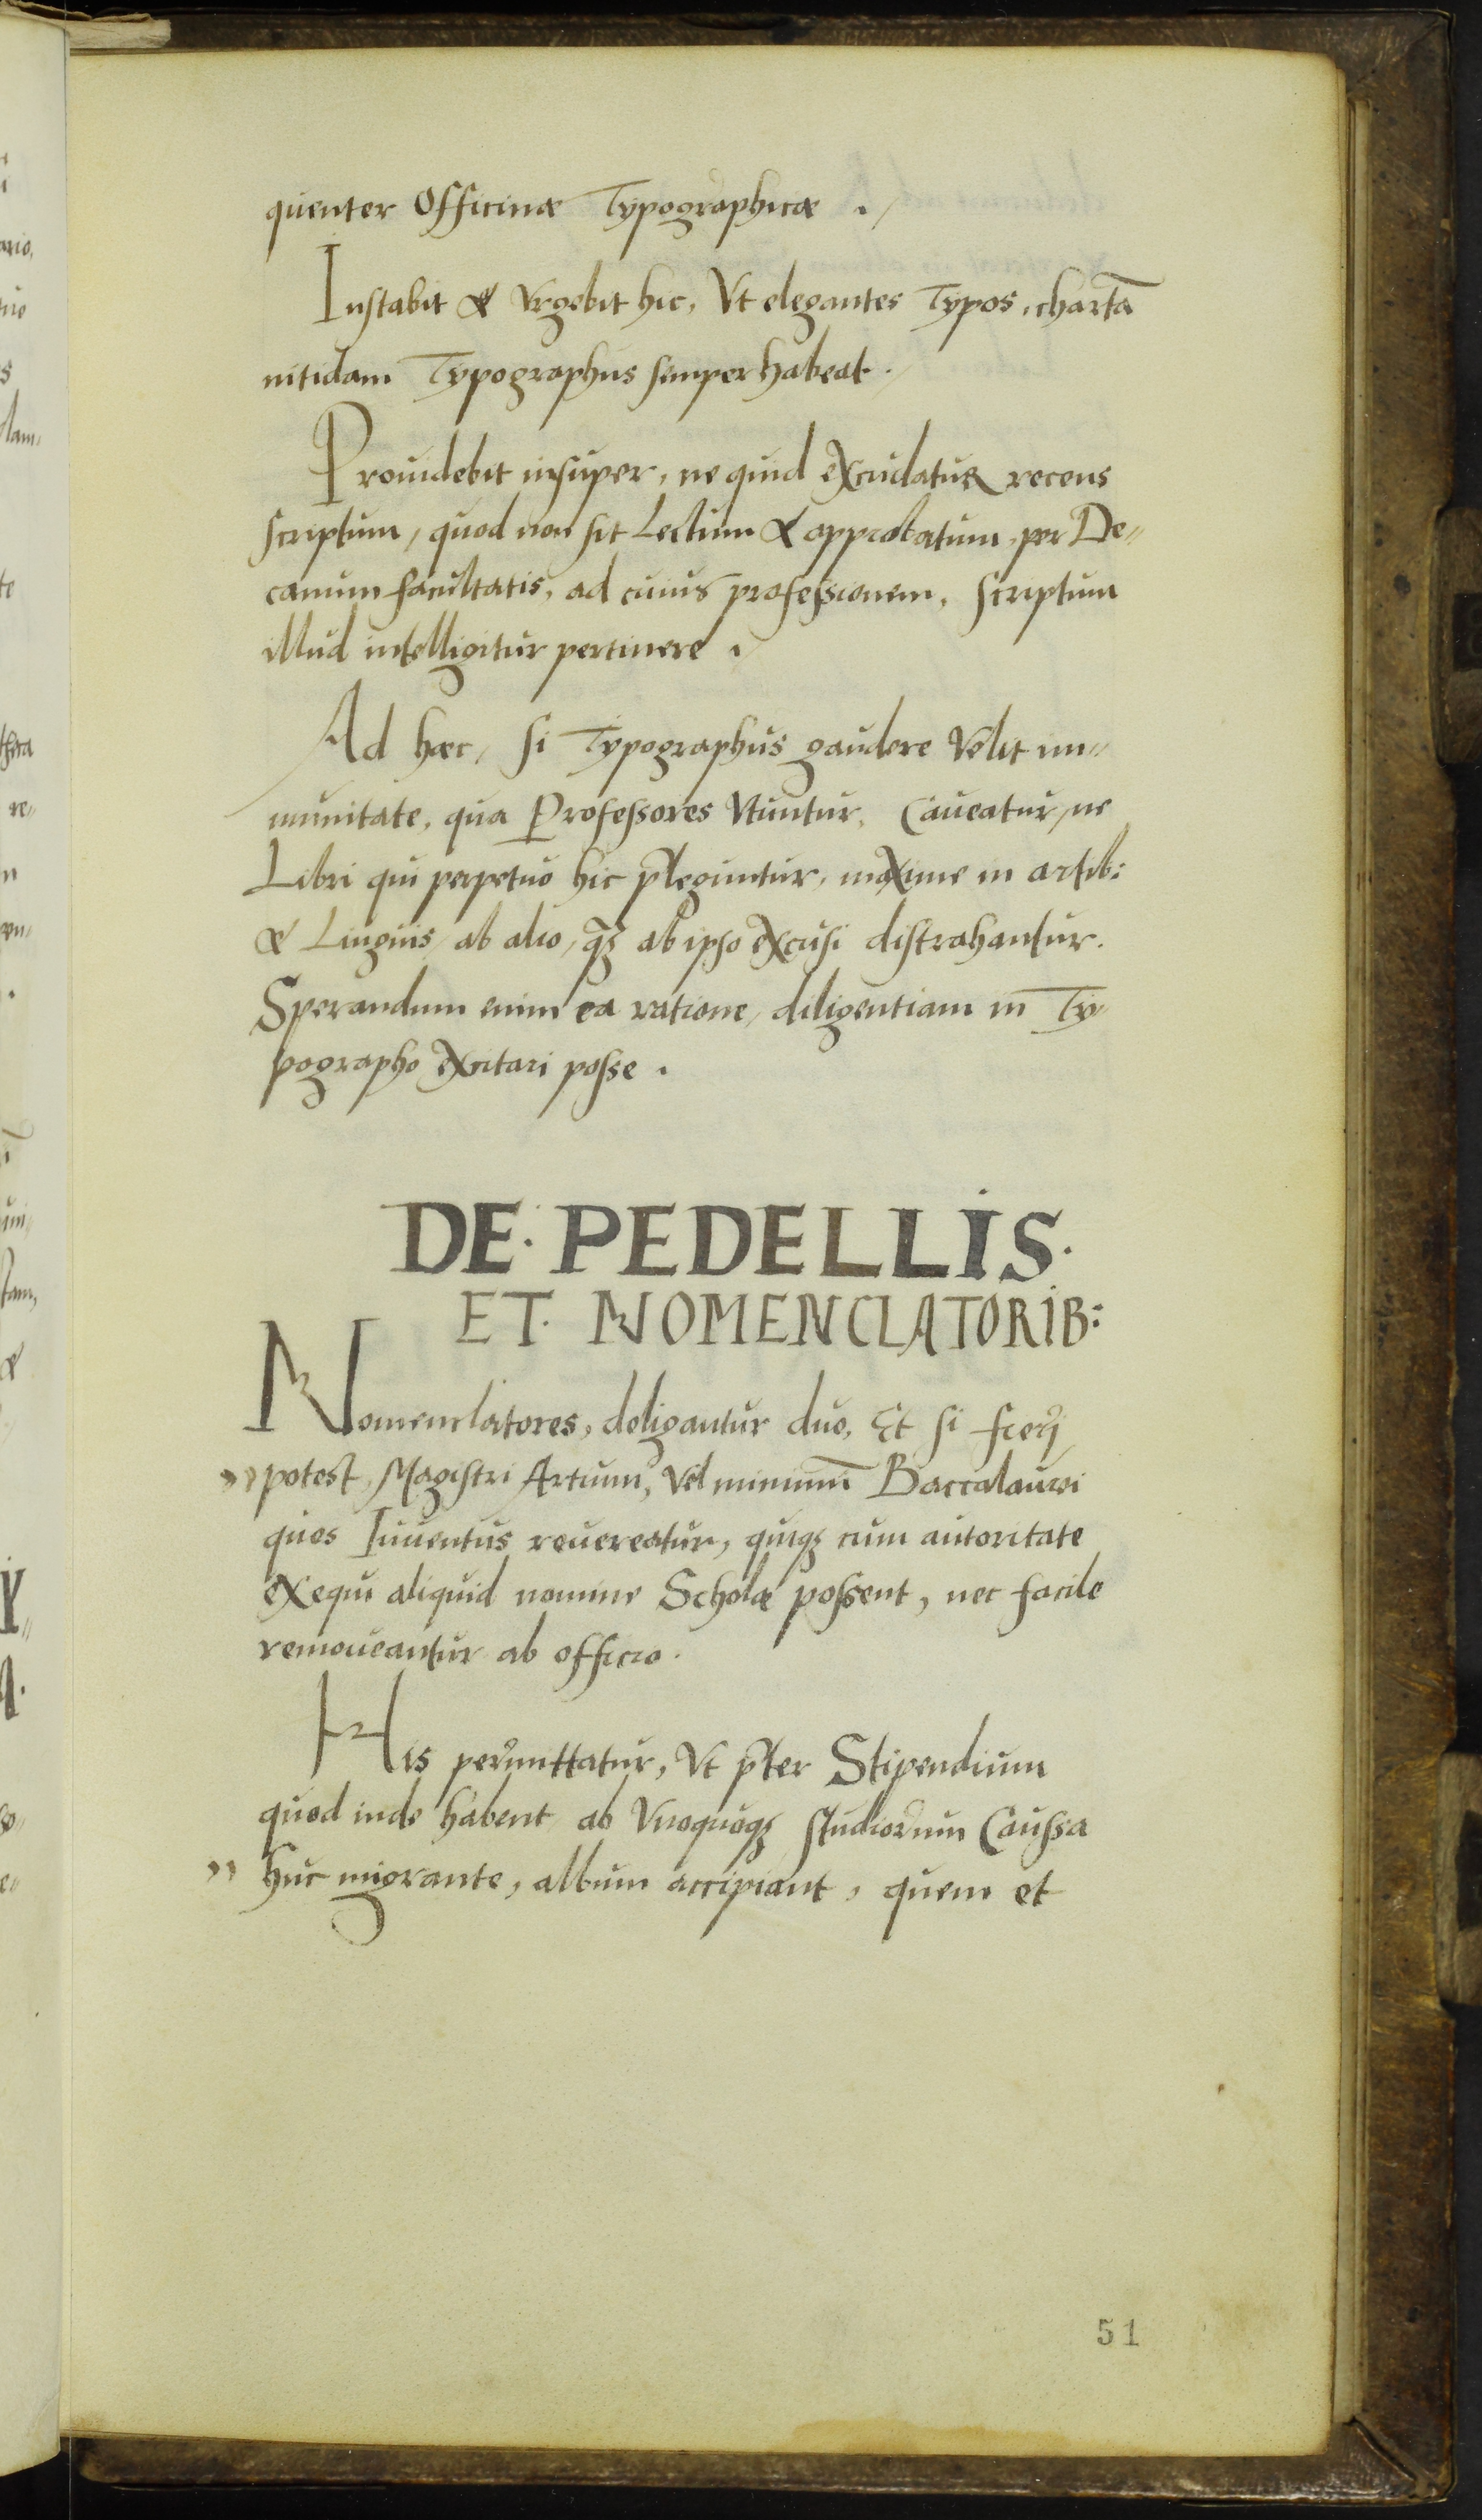 quenter Officinæ Typographicæ .
Instabit & Vrgebit hic, Vt elegantes Typos, chartā
nitidam Typographus semper habeat.
Prouidebit insuper, ne quid excudatur recens
scriptum, quod non sit Lectum & approbatum per De〃
canum facultatis, ad cuius professionem, scriptum
illud intelligitur pertinere .
Ad hæc, si Typographus gaudere Velit im〃
munitate, qua Professores Vtuntur, Caueatur, ne
Libri qui perpetuo hic p̄leguntur, maxime in artib:
& Linguis, ab alio, q̄ꝫ ab ipso excusi distrahantur.
Sperandum enim ea ratione, diligentiam in Ty〃
pographo excitari posse .
DE· PEDELLIS·
ET· NOMENCLATORIB:
Nomenclatores, deligantur duo, Et si fieri
〃 potest, Magistri Artium, Vel minimū Baccalaurei
quos Iuuentus reuereatur, quiqꝫ cum autoritate
exequi aliquid nomine Scholæ possent, nec facile
remoueantur ab officio.
His permittatur, Vt p̄ter Stipendium
quod inde habent ab Vnoquoqꝫ studiorum Caussa
〃 huc migrante, album accipiant, quem et
51